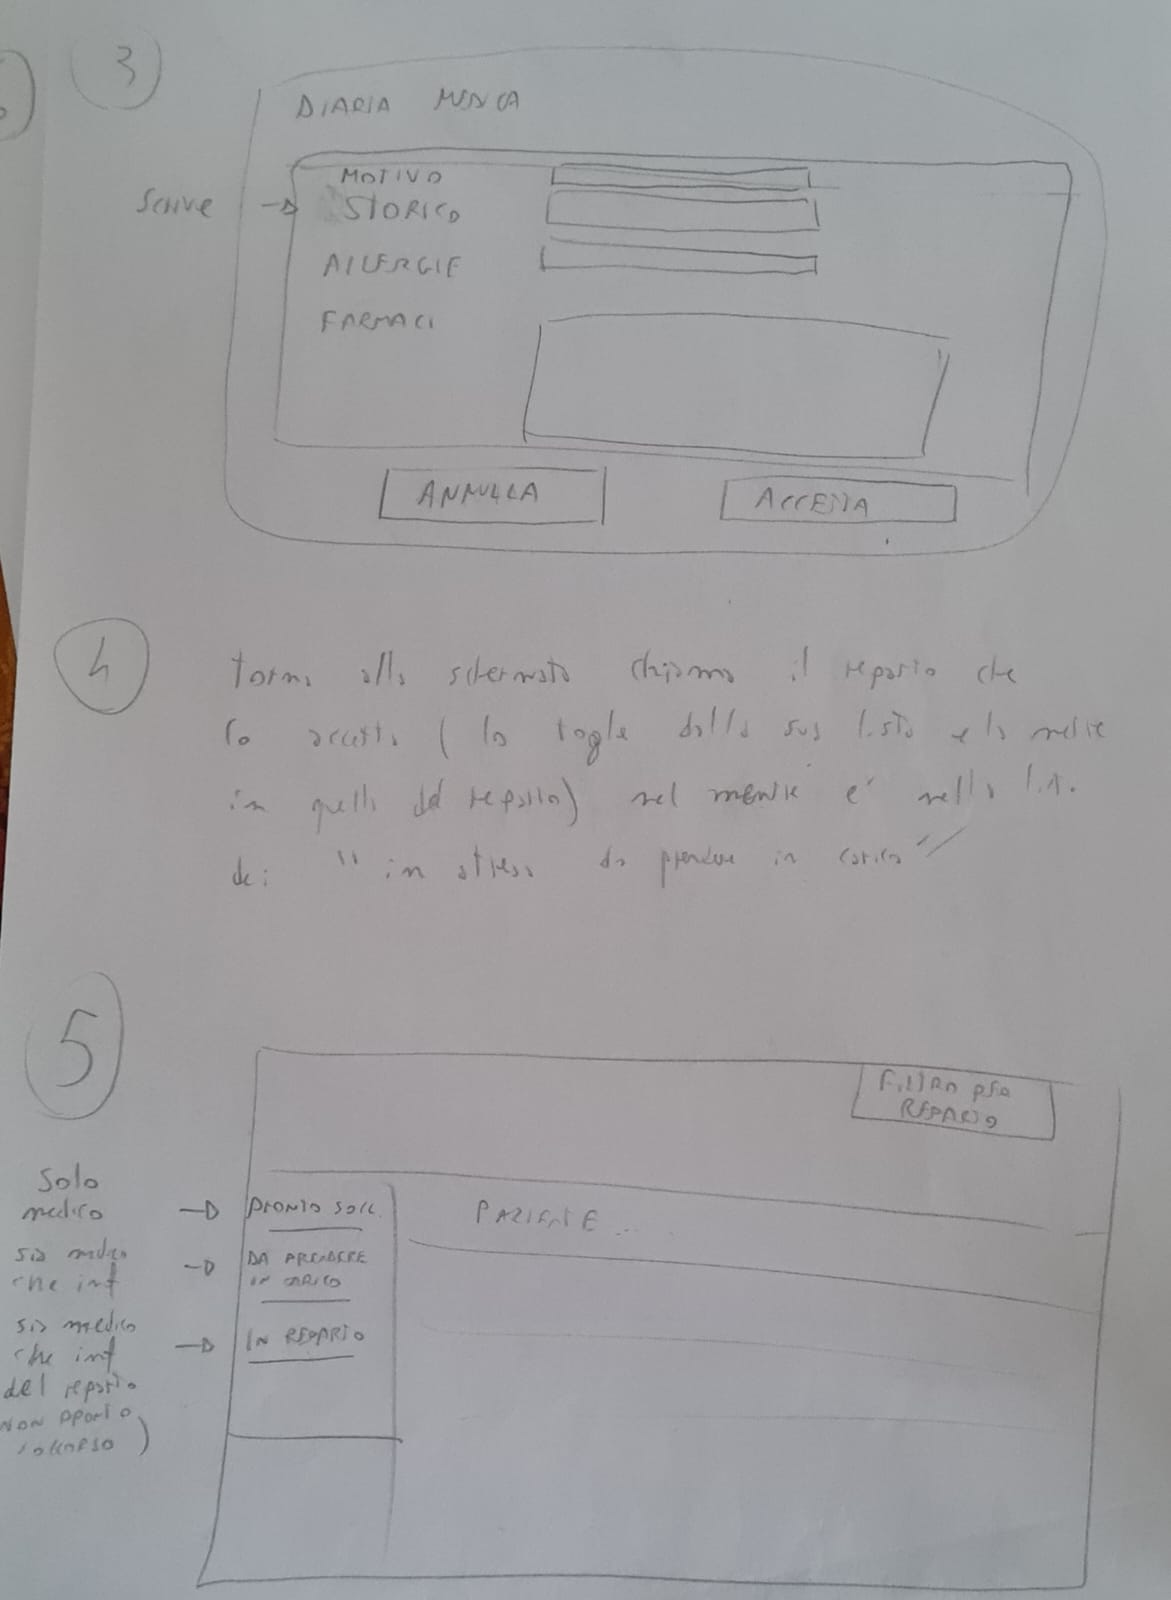 3
DIARIA MEDICA
MOTIVO
Scrive
STORICO
ALLERGIE
FARMACI
ANNULLA
ACCETTA
4
torna alla schermata chiama il reparto che
lo accetta (lo togle dalla sua lista e lo mette
in quella del reparto) nel mentre e' nella list.
dei "in attesa da prendere in carico"
5
FILTRO PER
REPARTO
Solo
medico
PRONTO SOCC.
PAZIENTE...
sia medico
che inf
DA PRENDERE
IN CARICO
sia medico
che inf
del reparto
NON PRONTO
SOCCORSO)
IN REPARTO